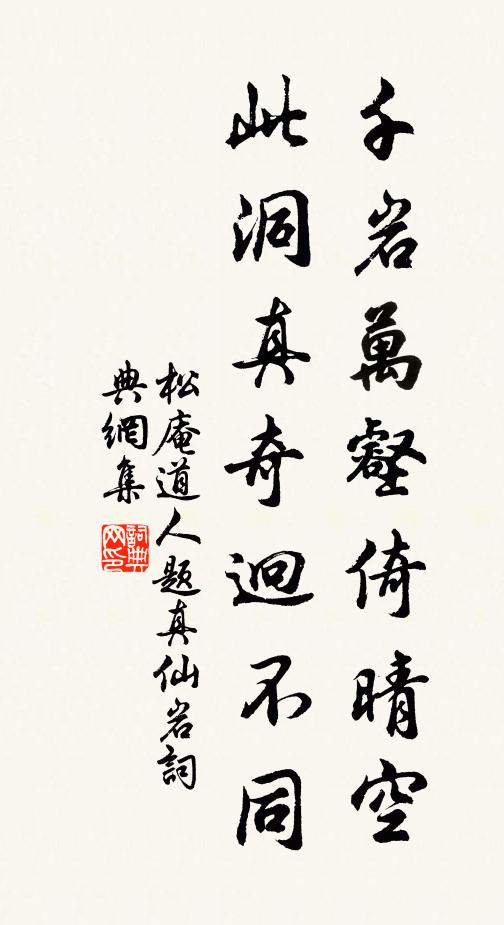 千岩萬壑倚晴空
此洞真奇迥不同
松庵道人題真仙岩詞
典網集
詞典网印